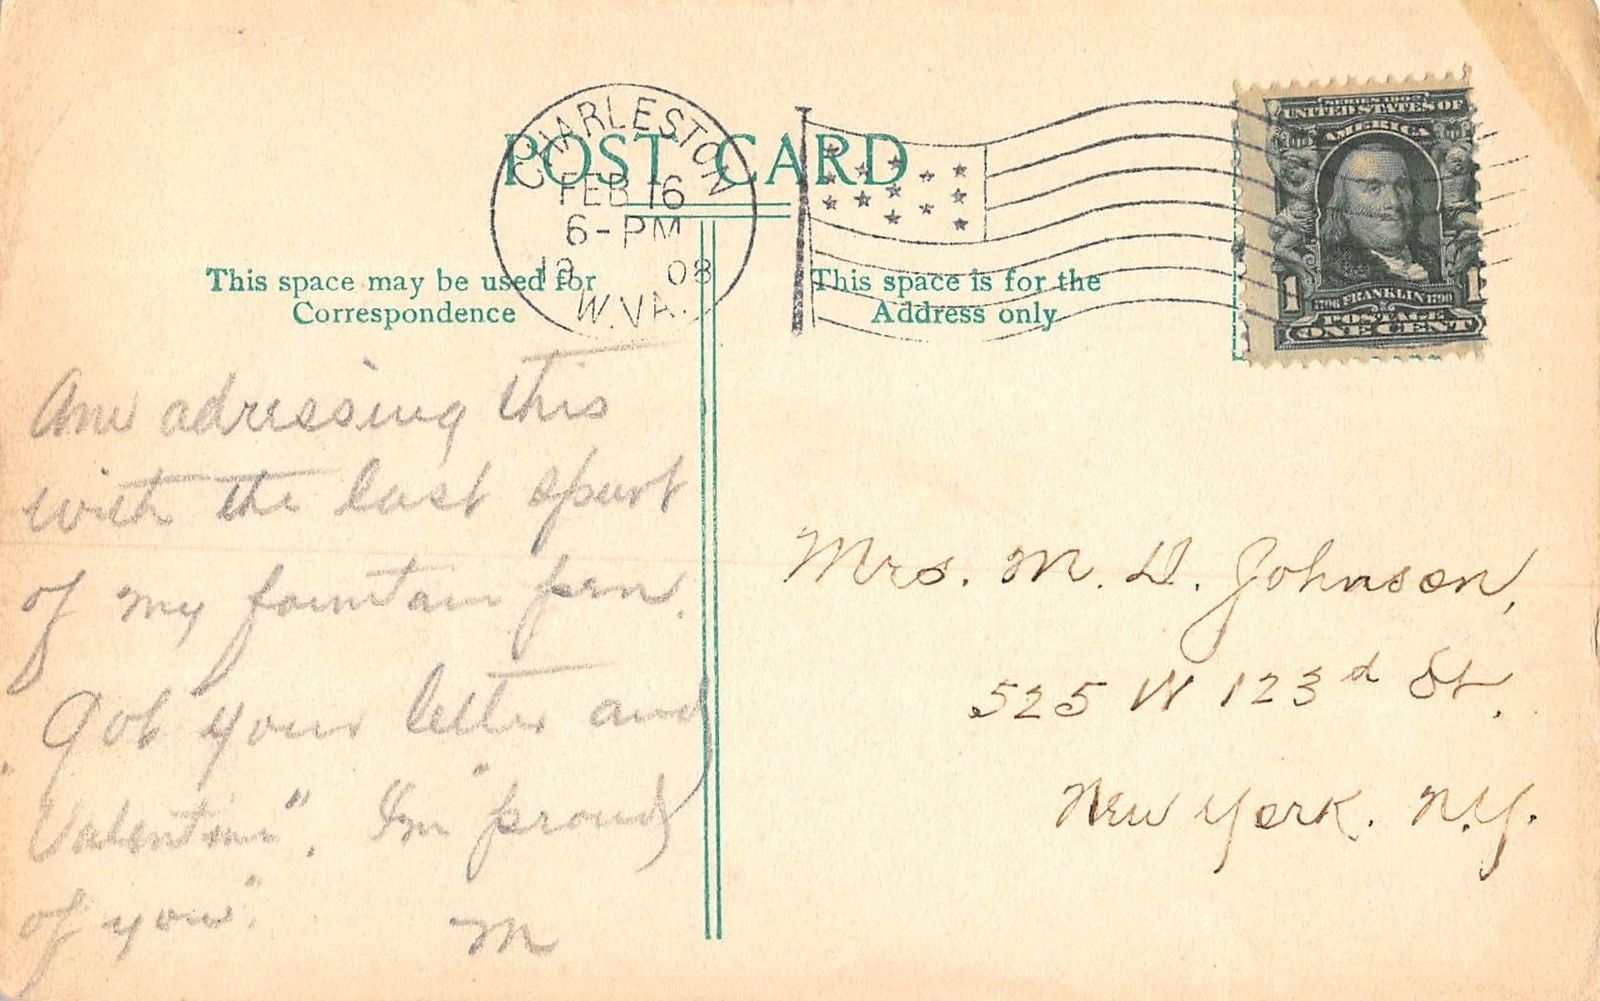 POST CARD
CHARLESTON
FEB 16
6-PM
19 08
W.VA.
UNITED STATES OF
AMERICA
1 1
1706 FRANKLIN 1790
POSTAGE
ONE CENT
This space may be used for
Correspondence
This space is for the
Address only
Am adressing this
with the last spurt
of my fountain pen.
Got your letter and
"Valentine". I'm "proud
of you".
M
Mrs. M. D. Johnson,
525 W 123d St.
New York. N.Y.